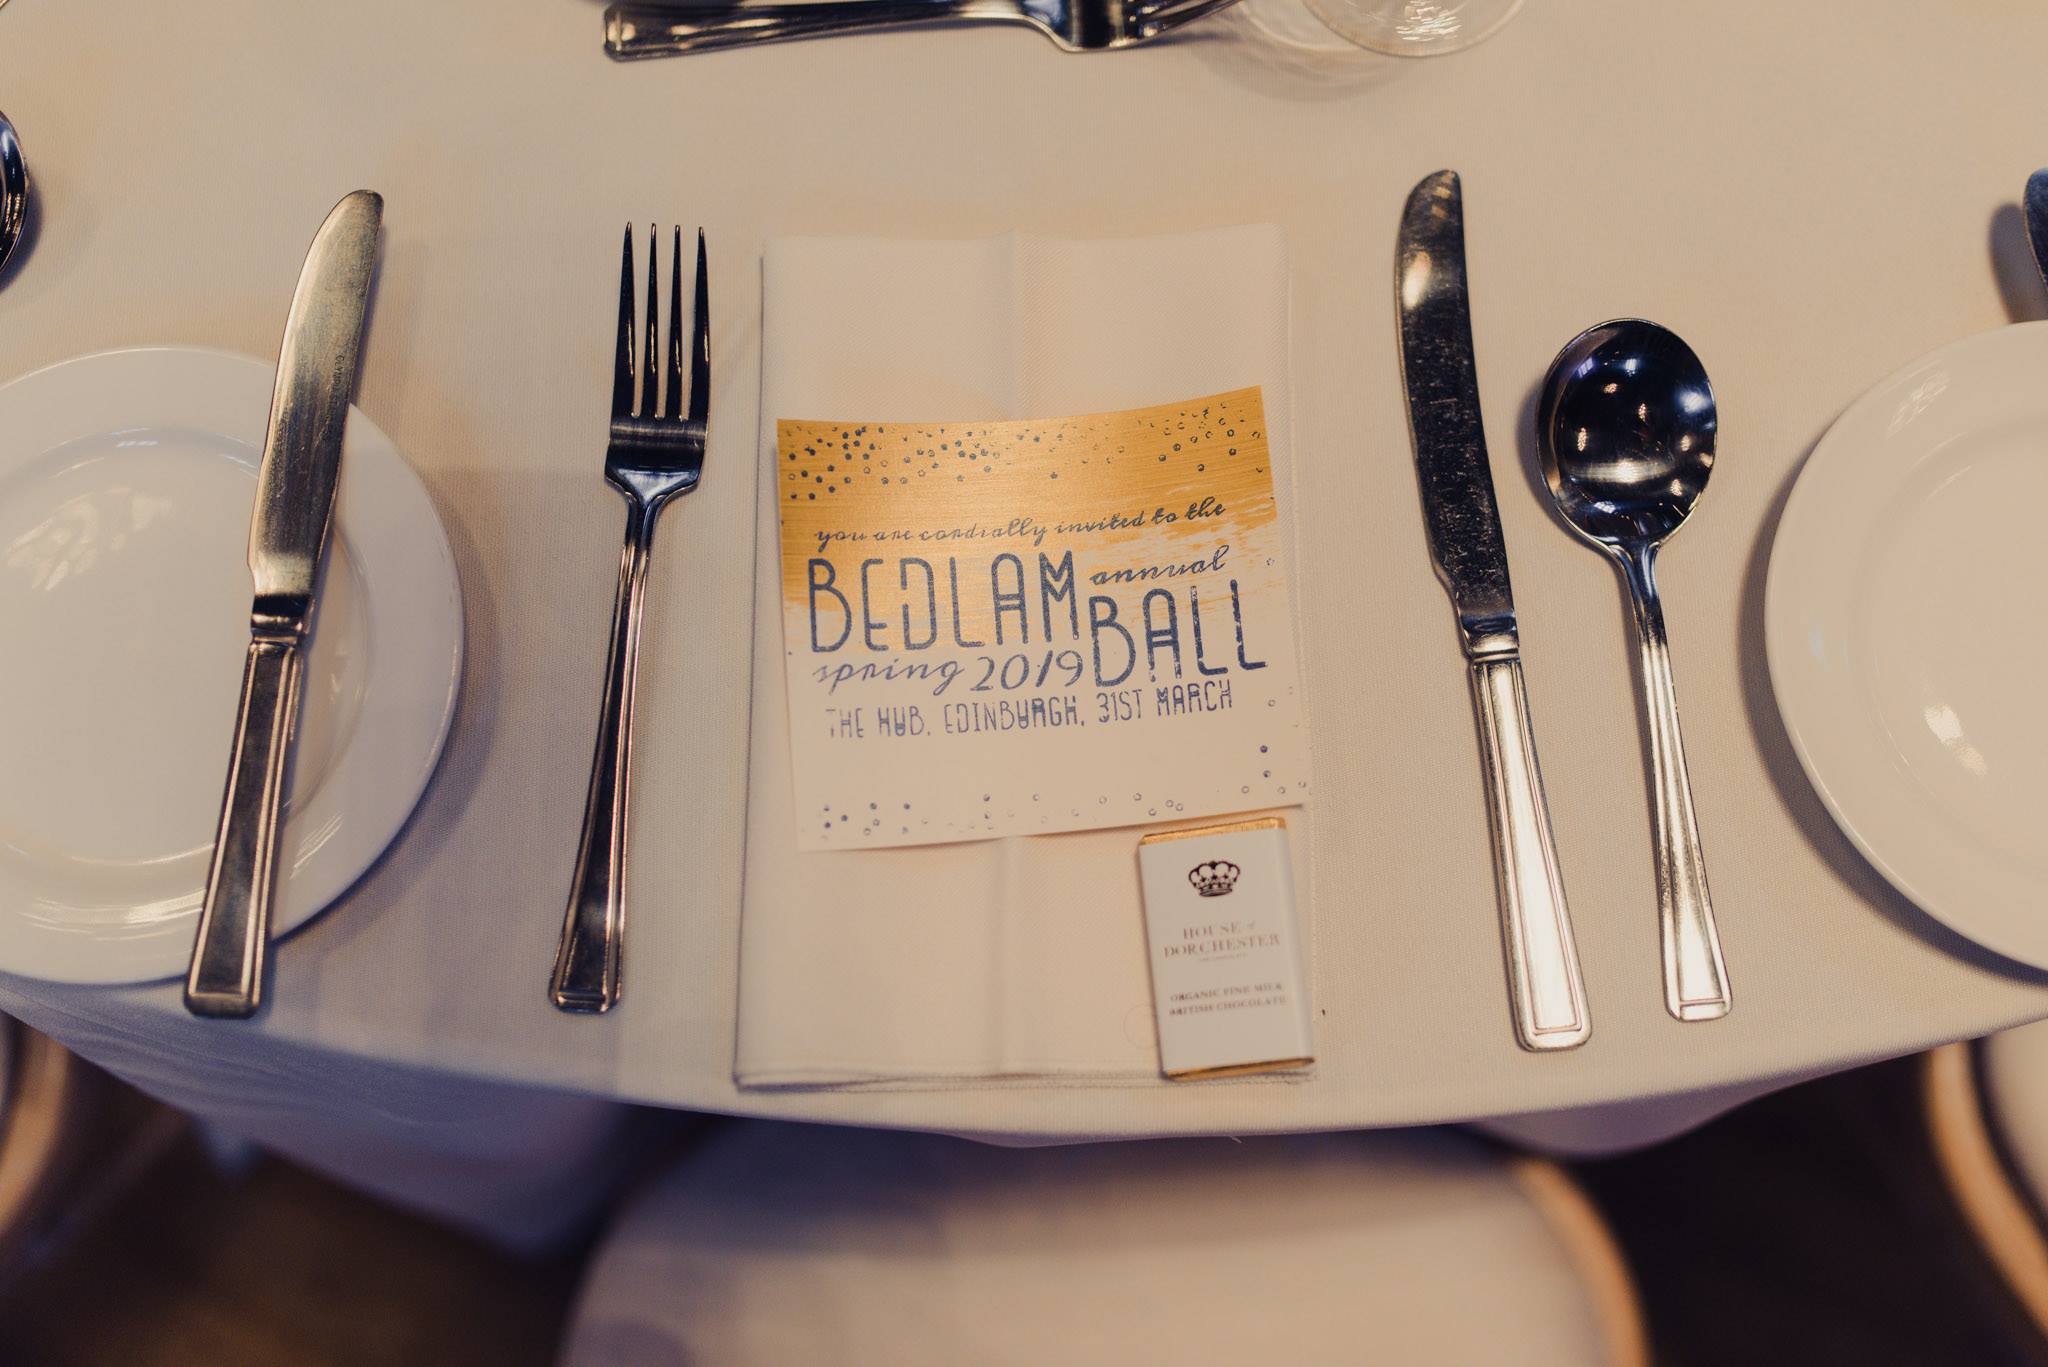 you are cordially invited to the
BEDLAM annual
BALL
spring 2019
THE HUB, EDINBURGH, 31ST MARCH
HOUSE of
DORCHESTER
ORGANIC FINE MILK
BRITISH CHOCOLATE